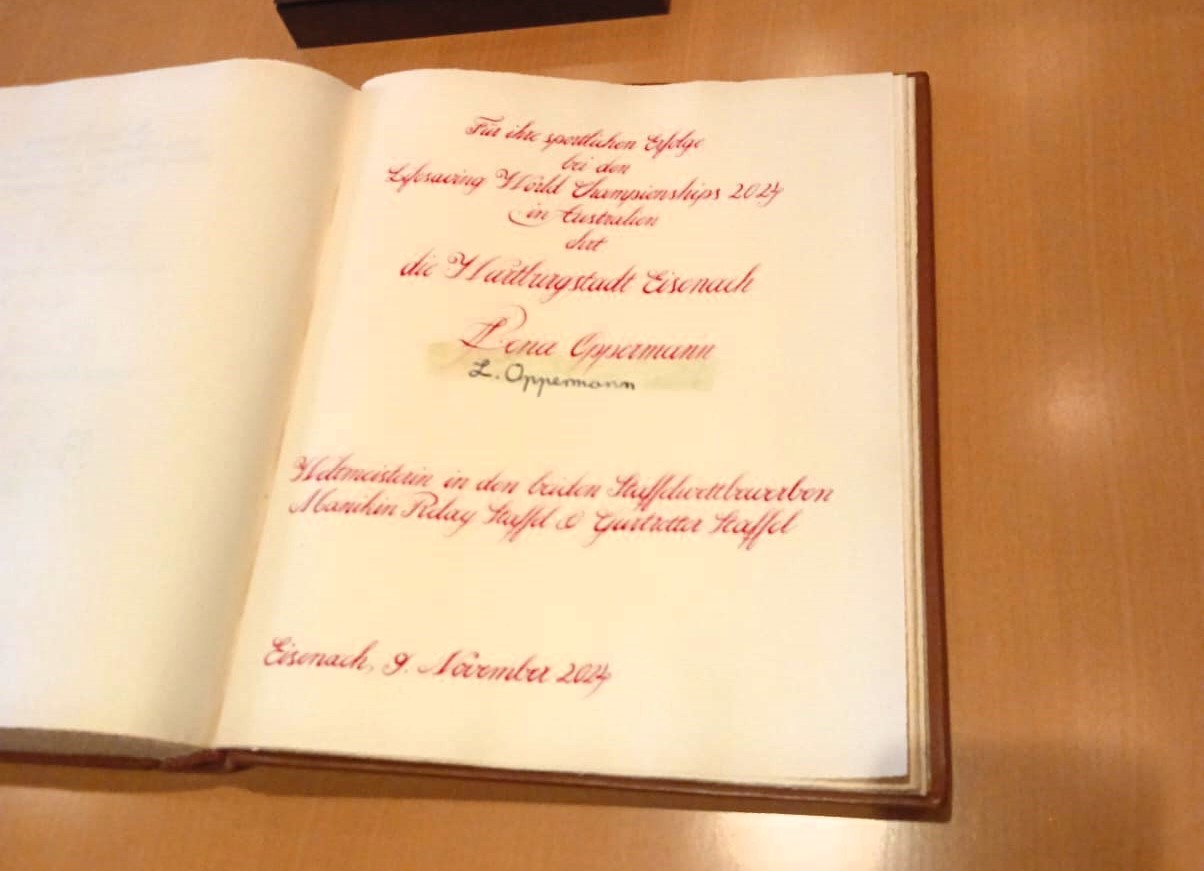 Für ihre sportlichen Erfolge
bei den
Lifesaving World Championships 2024
in Australien
ehrt
die Wartburgstadt Eisenach
Lena Oppermann
L. Oppermann
Weltmeisterin in den beiden Staffelwettbewerben
Manikin Relay Staffel & Gurtretter Staffel
Eisenach, 9. November 2024